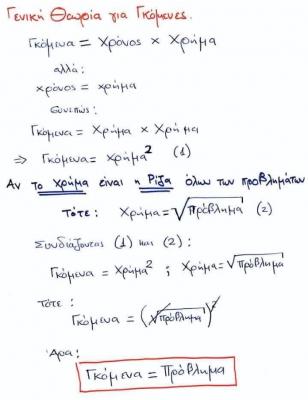 Γενική Θεωρία για Γκόμενες.
Γκόμενα = Χρόνος × Χρήμα
αλλά:
χρόνος = χρήμα
Συνεπώς:
Γκόμενα = Χρήμα × Χρήμα
⇒ Γκόμενα = χρήμα² (1)
Αν το χρήμα είναι η Ρίζα όλων των προβλημάτων
τότε: Χρήμα = √Πρόβλημα (2)
Συνδιάζοντας (1) και (2):
Γκόμενα = Χρήμα² ; Χρήμα = √Πρόβλημα
Τότε:
Γκόμενα = (√Πρόβλημα)²
Άρα:
Γκόμενα = Πρόβλημα